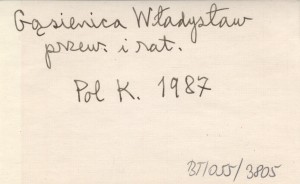 Gąsienica Władysław
przew. i rat.
Pol K. 1987
BT/055/3805